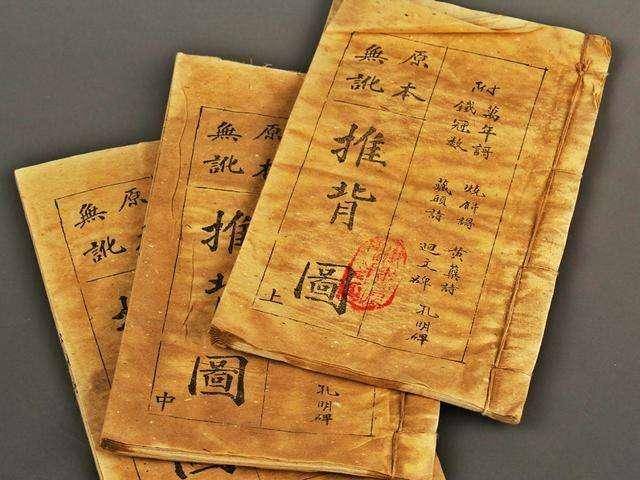 附
萬年謌 燒餅謌 黃蘗詩 孔明碑
鐵冠數 藏頭詩 迴文碑
原本
無訛
推背圖
上
孔明碑
原本
無訛
推背圖
中
原本
無訛